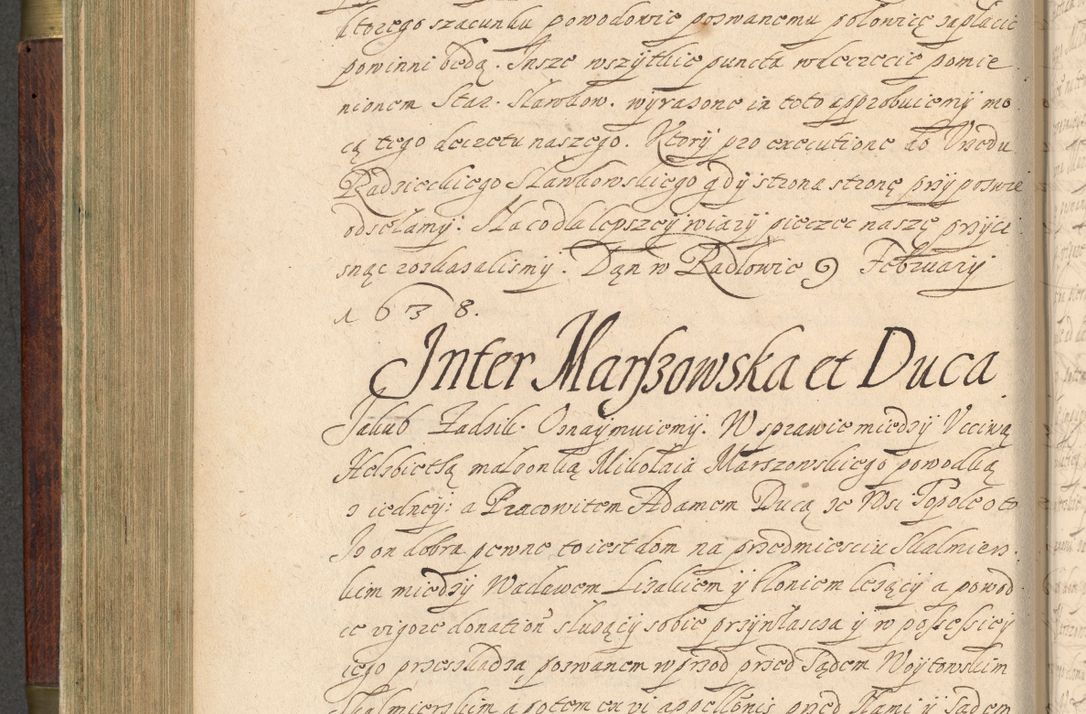 ktorego szacunku powodowie pozwanemu połowicę zapłacic
powinni będą. Insze wszytkie puncta w decrecie pomie
nionem Star. Sławkow. wyrazone in toto approbuiemy mo
cą tego decretu naszego. Ktory pro executione do Urzedu
Radzieckiego Sławkowskiego gdy strona stronę przypozwie
odsełamy. Na co dla lepszey wiary pieczęc naszę przyci
snąc roskazalismy. Dan w Radłowie 9 Februarij
1638.
Inter Marszowska et Duca
Jakub Zadzik. Oznaymuiemy. W sprawie miedzy Ucciwą
Helzbietką małzonką Mikołaia Marszowskiego powodką
z iedney: a Pracowitem Adamem Ducą ze Wsi Topole o to
Iz on dobra pewne to iest dom na przedmiesciu Skalmiers
kim miedzy Wacławem Lisakiem y błoniem lezący a powod
ce vigore donation służący sobie przywłascza y w possessiey
iego przeszkadza, pozwanem wprzod przed Sądem Woytowskim
Skalmierskim a potem ex vi appellonis przed Nami y Sadem